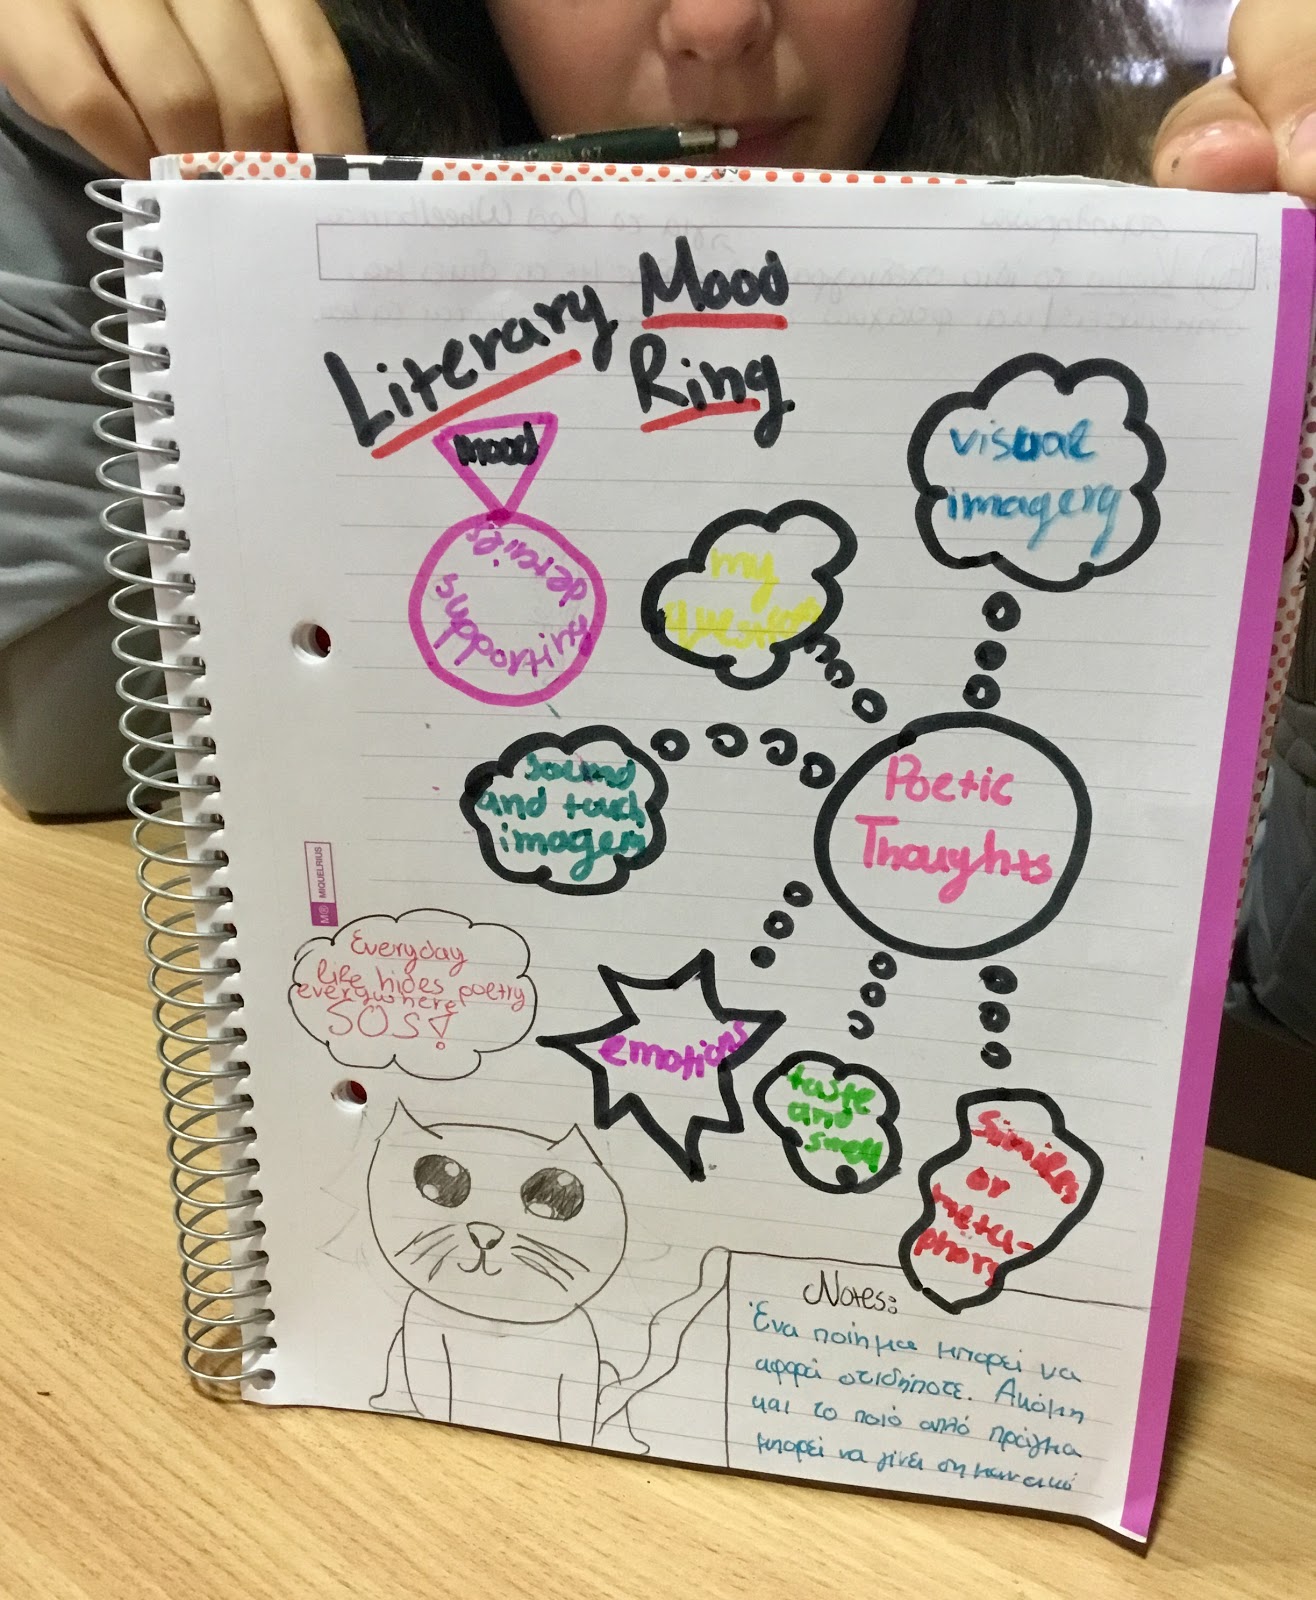 Literary Mood
Ring
mood
supporting
details
visual
imagery
my
questions
sound
and touch
imagery
Poetic
Thoughts
MIQUELRIUS
Everyday
life hides poetry
everywhere
SOS!
emotions
taste
and
smell
Similes
or
meta-
phors
Notes:
Ένα ποίημα μπορεί να
αφορά οτιδήποτε. Ακόμη
και το ποιό απλό πράγμα
μπορεί να γίνει σημαντικό